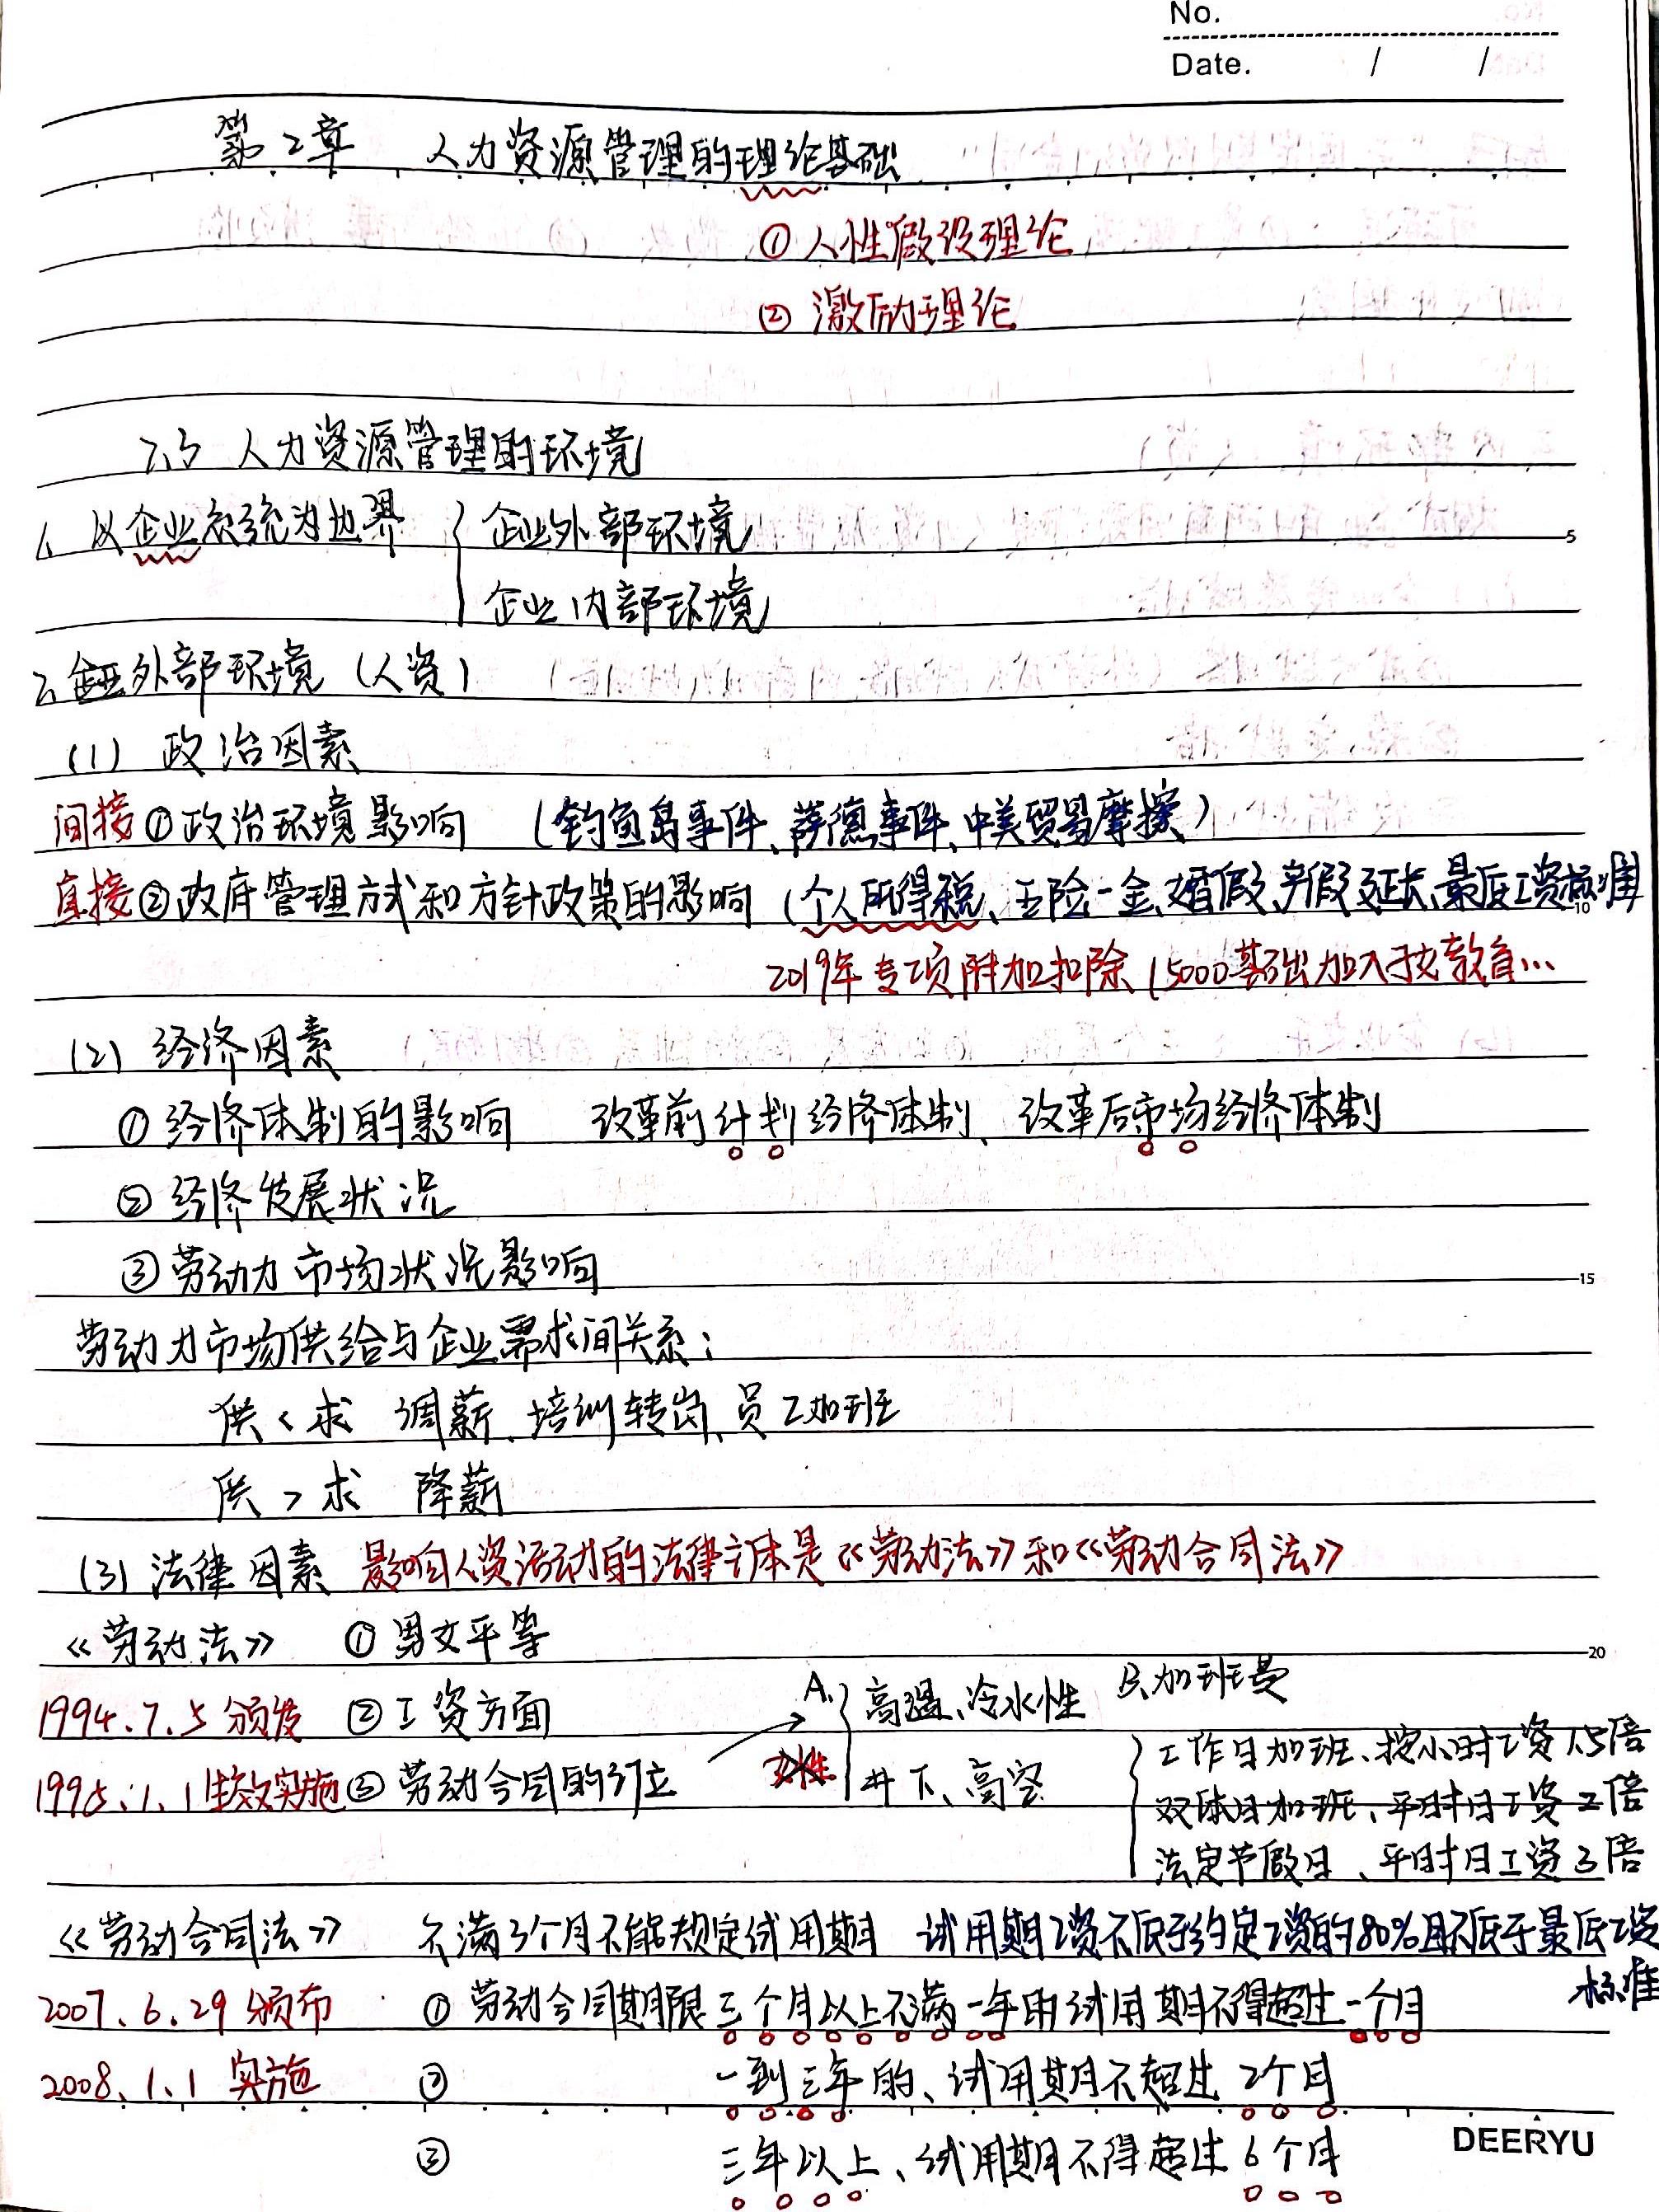 No.
Date. / /
第2章 人力资源管理的理论基础
① 人性假设理论
② 激励理论
2.3 人力资源管理的环境
1、从企业系统为边界 { 企业外部环境
企业内部环境
2、企业外部环境 (人资)
(1) 政治因素
间接 ①政治环境影响 (钓鱼岛事件、萨德事件、中美贸易摩擦)
直接 ②政府管理方式和方针政策的影响 (个人所得税、五险一金、婚假、产假延长、最低工资标准
2019年专项附加扣除 (5000基础加入子女教育…
(2) 经济因素
① 经济体制的影响 改革前计划经济体制、改革后市场经济体制
② 经济发展状况
③ 劳动力市场状况影响
劳动力市场供给与企业需求间关系:
供<求 调薪、培训转岗、员工加班
供>求 降薪
(3) 法律因素 影响人资活动的法律主体是《劳动法》和《劳动合同法》
《劳动法》 ① 男女平等
1994.7.5 颁发 ② 工资方面
1995.1.1生效实施 ③ 劳动合同的订立
A. { 高温、冷水性
女性 井下、高空
B、加班费
{ 工作日加班、按小时工资1.5倍
双休日加班、平时日工资2倍
法定节假日、平时日工资3倍
《劳动合同法》 不满3个月不能规定试用期 试用期工资不低于约定工资的80%且不低于最低工资
标准
2007.6.29 颁布 ① 劳动合同期限三个月以上不满一年的试用期不得超过一个月
2008.1.1 实施 ② 一到三年的、试用期不超过2个月
③ 三年以上、试用期不得超过6个月
DEERYU
5
10
15
20